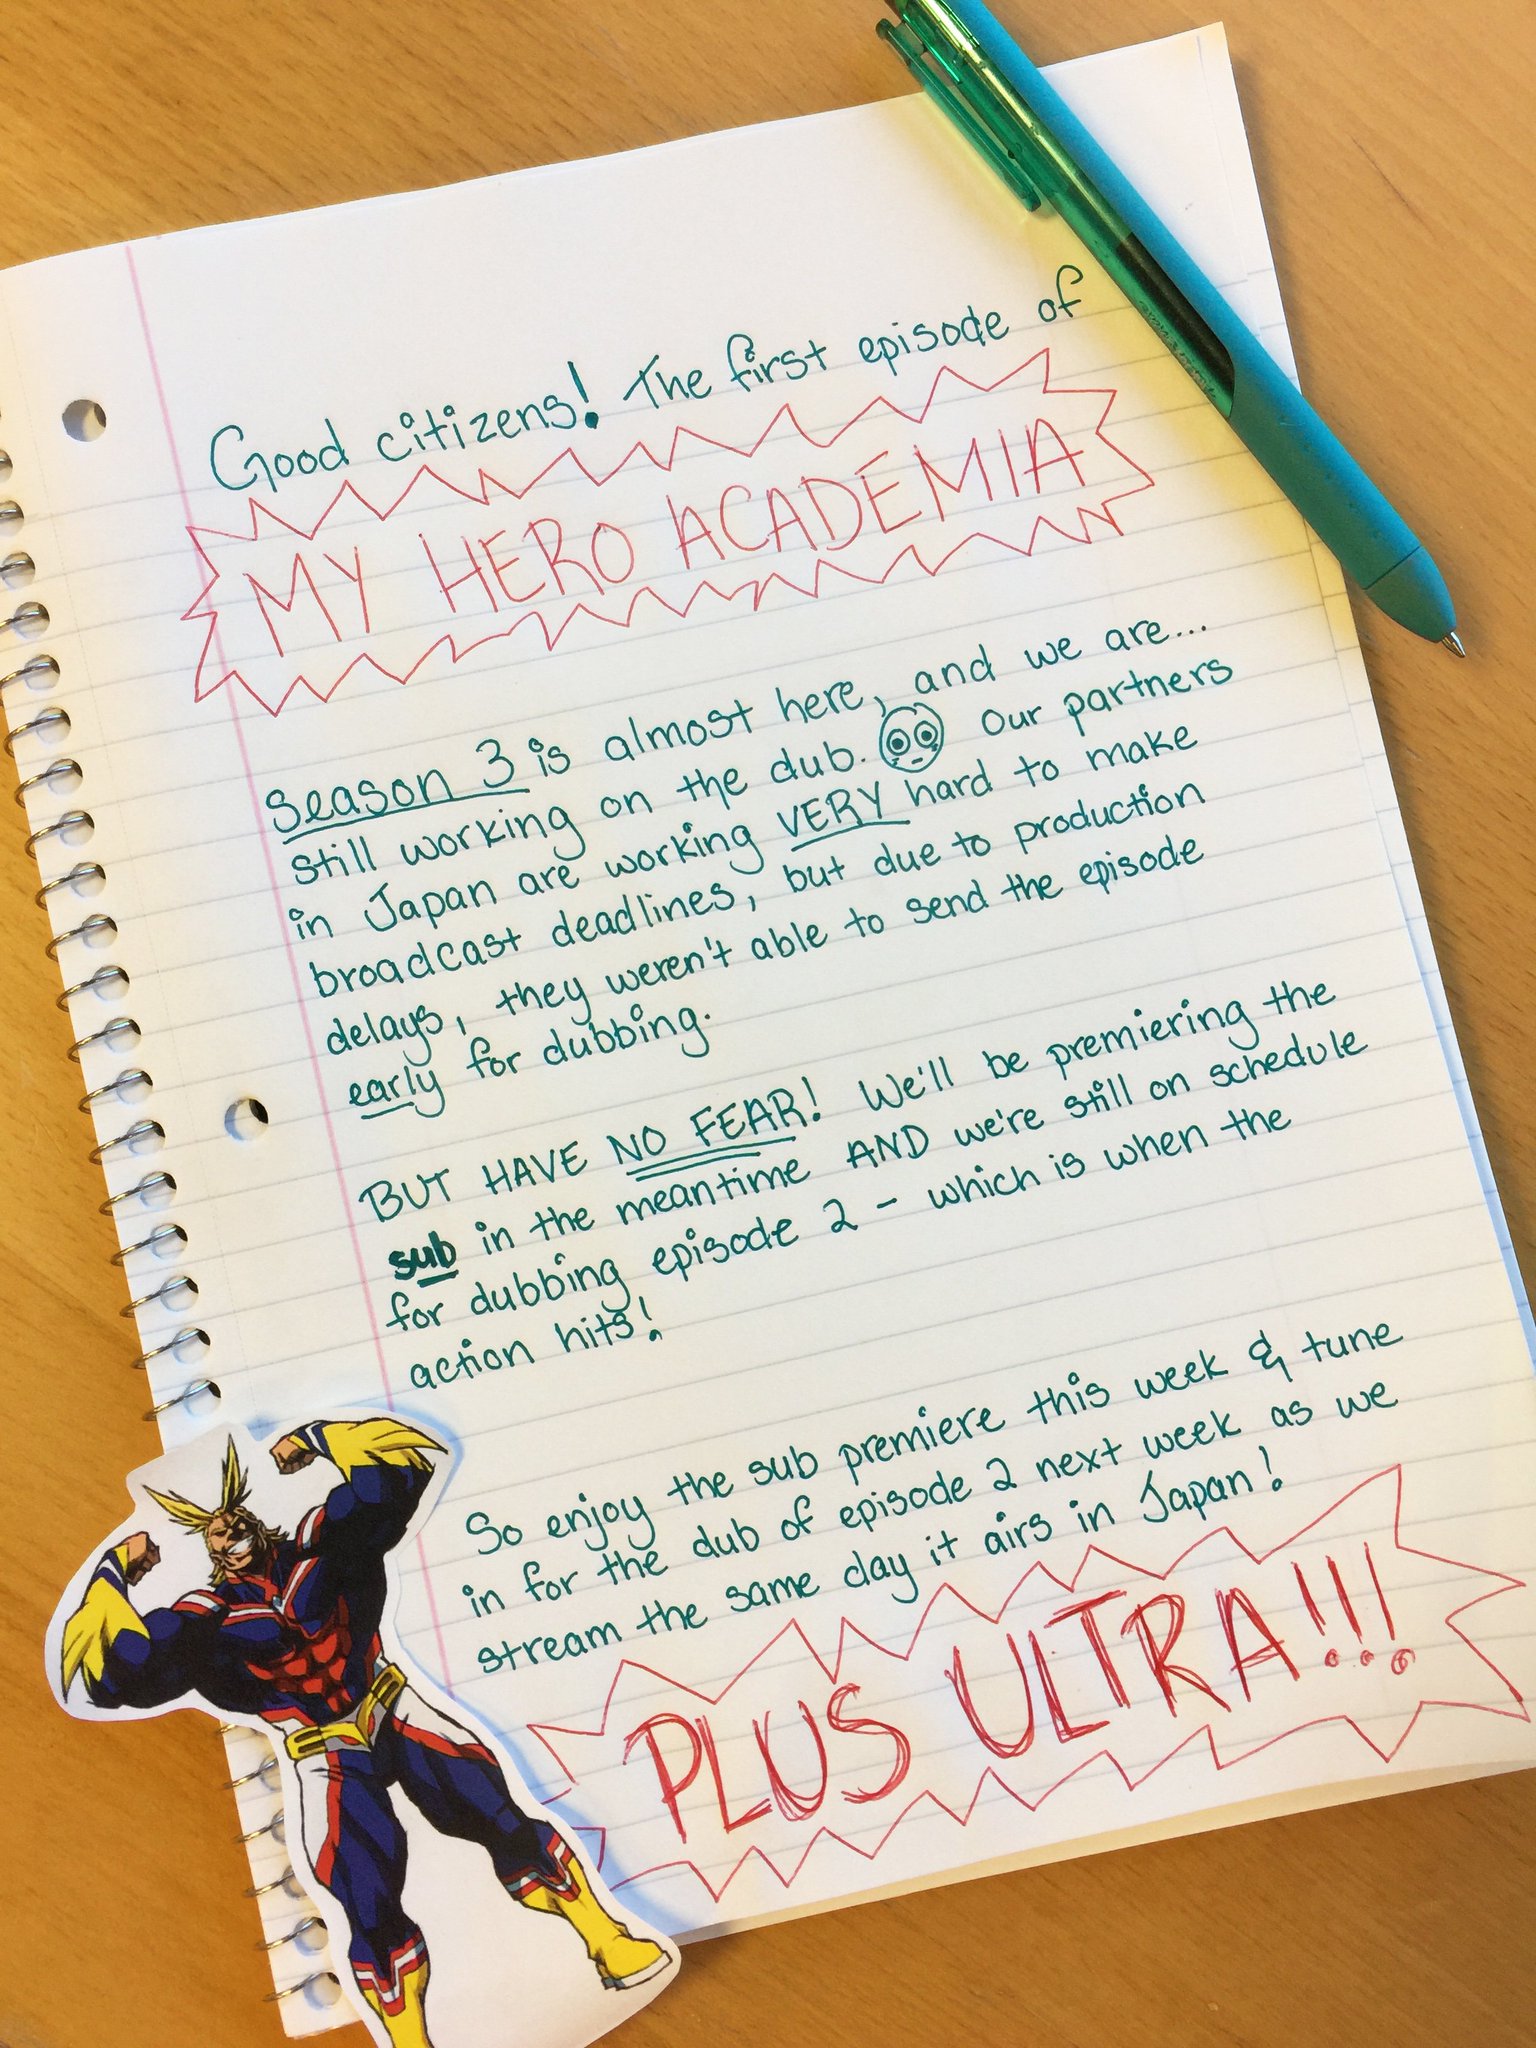 Good citizens! The first episode of
MY HERO ACADEMIA
Season 3 is almost here, and we are...
still working on the dub. Our partners
in Japan are working VERY hard to make
broadcast deadlines, but due to production
delays, they weren't able to send the episode
early for dubbing.
BUT HAVE NO FEAR! We'll be premiering the
sub in the meantime AND we're still on schedule
for dubbing episode 2 - which is when the
action hits!
So enjoy the sub premiere this week & tune
in for the dub of episode 2 next week as we
stream the same day it airs in Japan!
PLUS ULTRA!!!